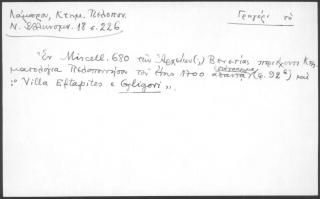 Λάμπρου, Κτημ. Πελοπον. Γρηγόρι τὸ
Ν. Ἑλληνομν. 18 σ. 226
Ἐν Miscell. 680 τῶν Ἀρχείων(;) Βενετίας περιέχοντι Κτη
ματολόγια Πελοποννήσου τοῦ ἔτους 1700 (φ. 92 β) καὶ
"Villa Eftapites e Gligori".